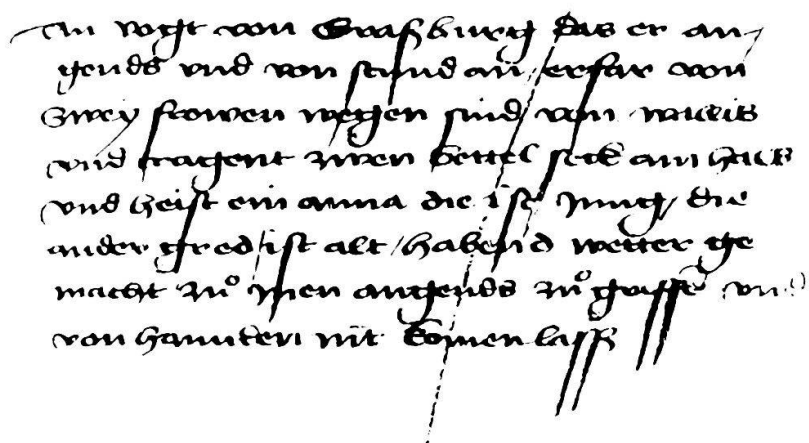 An vogt von Grasburg das er an-
gends vnd von stund an / erfar von
zwey frowen wegen sind vom wallis
vnd tragent zwen bettel seck am hals
vnd heist ein anna die ist Jung / die
ander gred ist alt / habend wetter ge
macht zuͦ Inen angends zuͦ griffe vnd
von handen nit komen lass